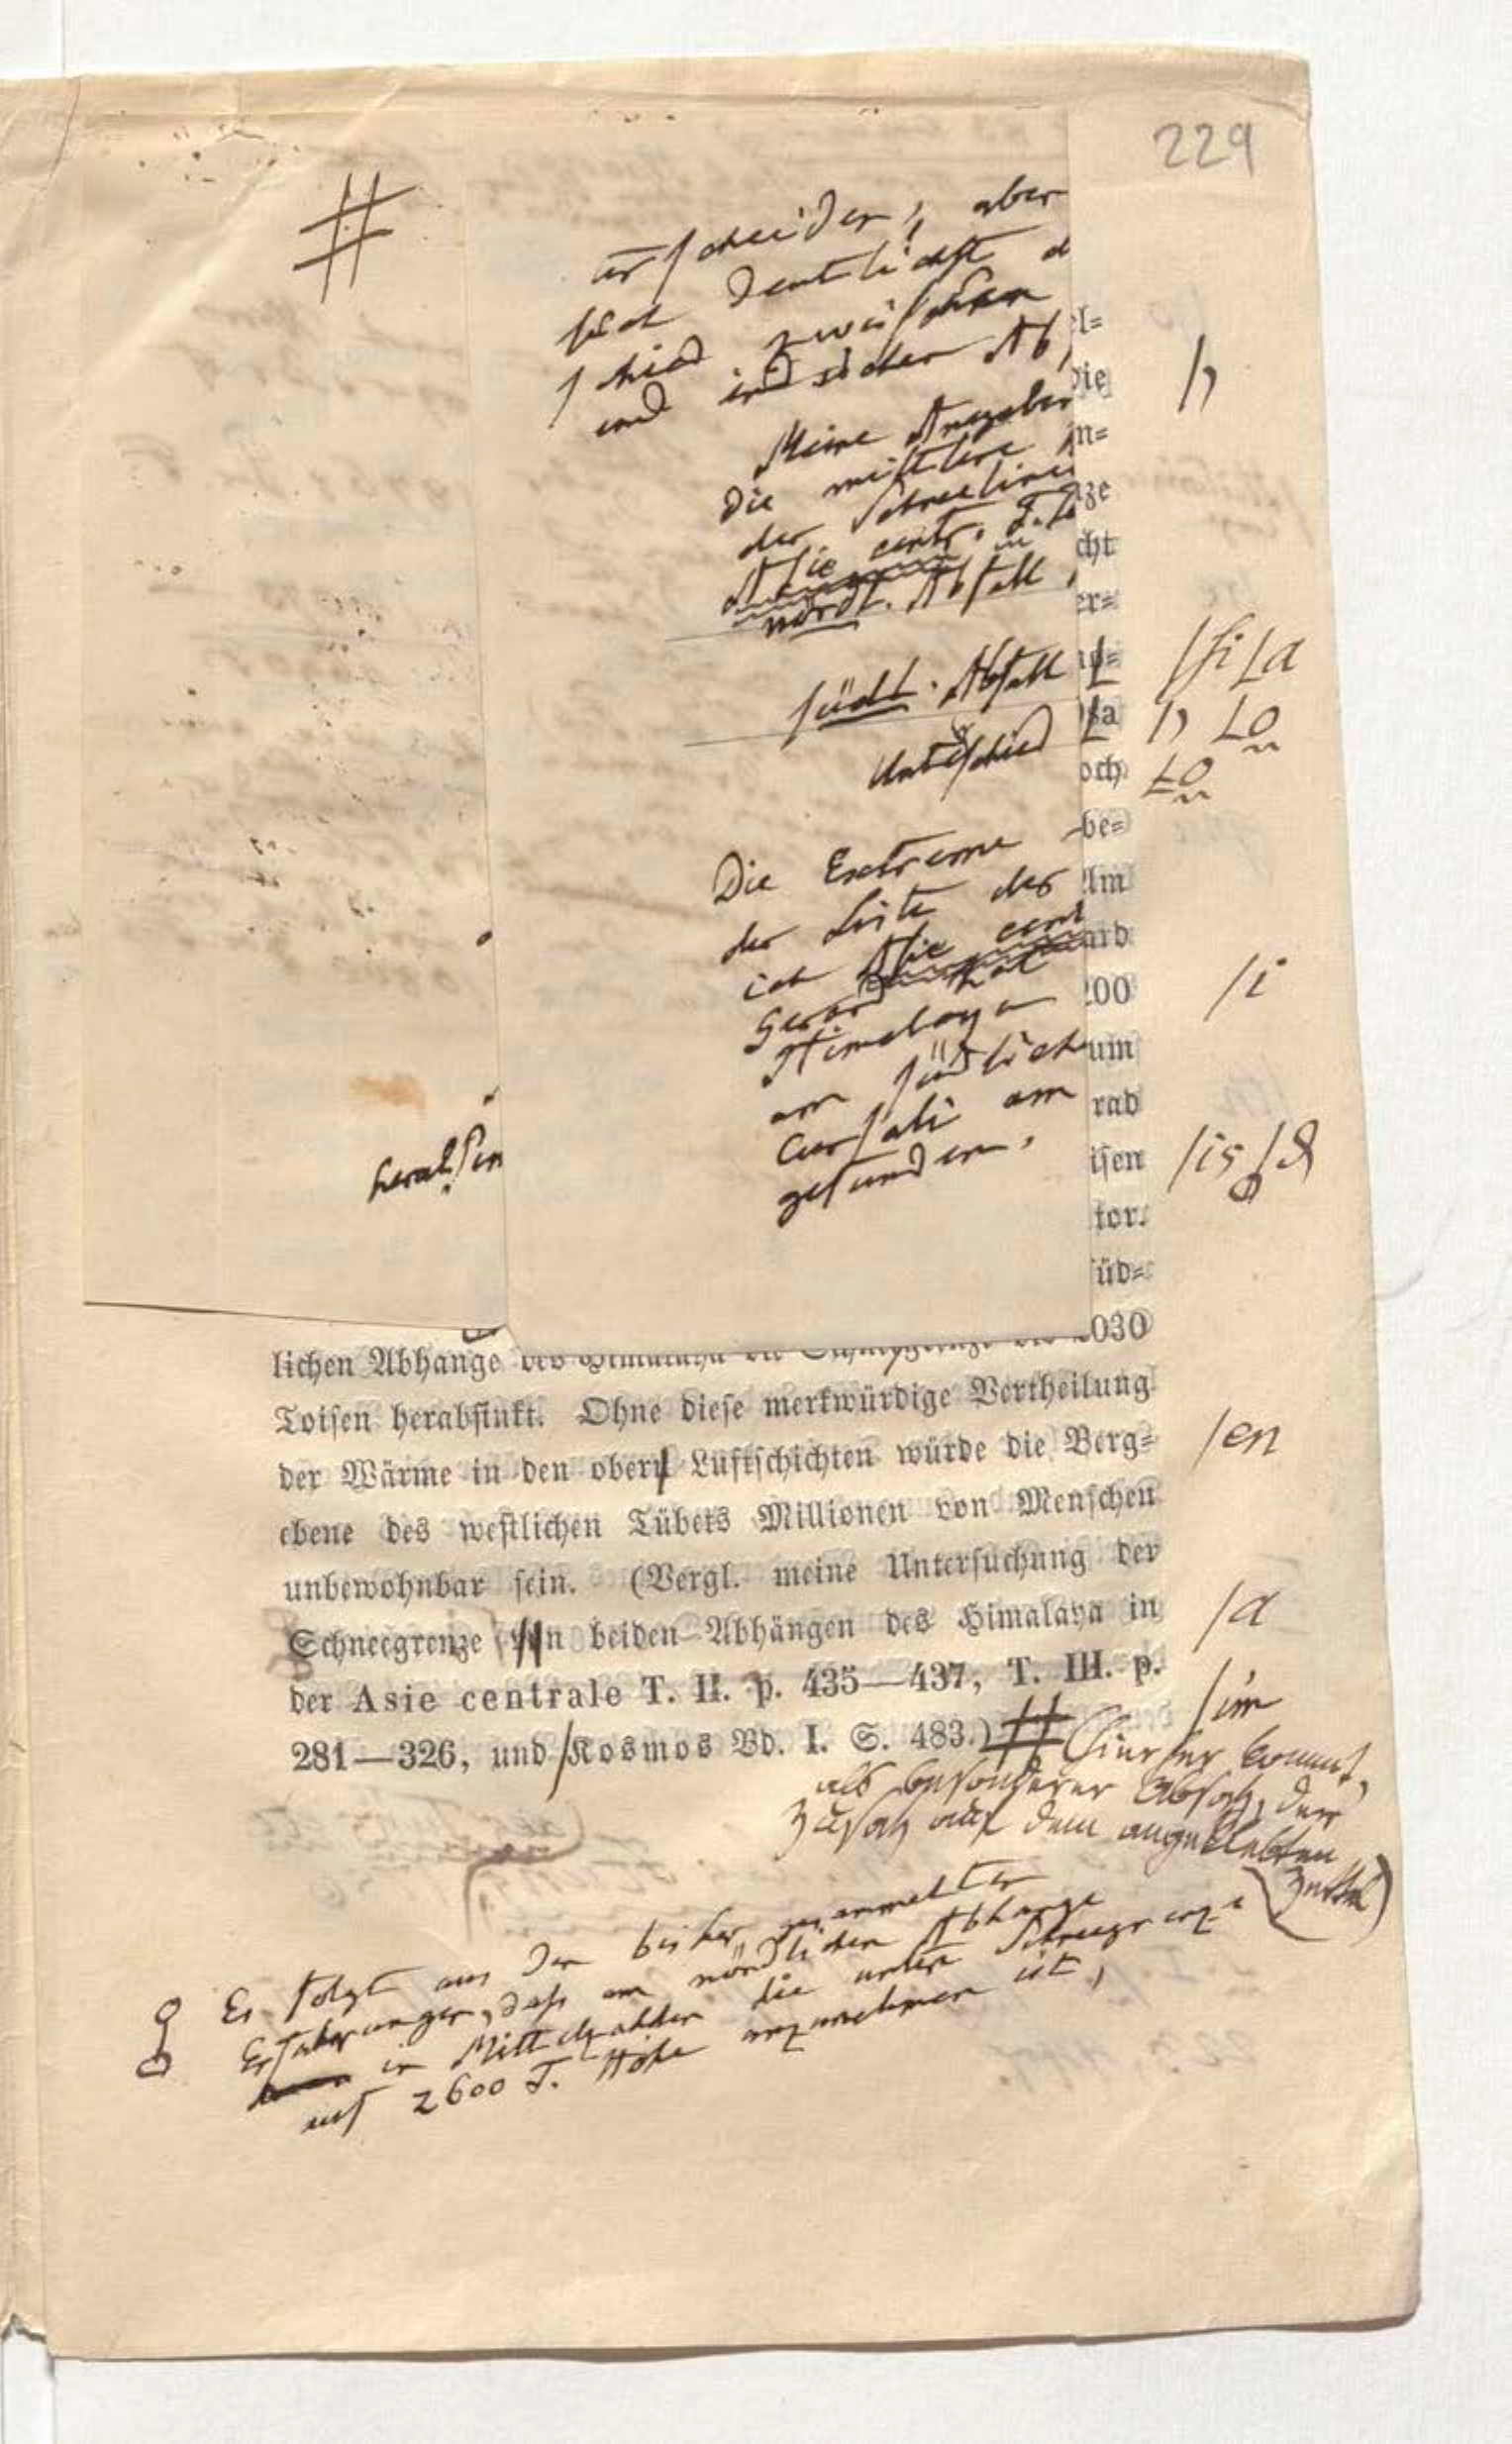 229
#
unscheiden, aber
deutlichst d
schied zwischen
und indischen Ab
Meine Angaben
Die mittlere
der Schneelinie
Asie centr. T. II
nördl. Abfall
südl. Abfall
Unterschied
Die Extreme
der Seite des
ich Asie cent
Gerard hat
Himalaya
am südlich
Cursali am
gefunden.
herabsin
el=
Die
in=
ze
cht
er=
sa
och
be=
Um
ard
200
um
rad
isen
tor.
süd=
lichen Abhange des Himalaya die Schneegrenze bis 2030
Toisen herabsinkt. Ohne diese merkwürdige Vertheilung
der Wärme in den obern Luftschichten würde die Berg=
ebene des westlichen Tübets Millionen von Menschen
unbewohnbar sein. (Vergl. meine Untersuchung der
Schneegrenze n beiden Abhängen des Himalaya in
der Asie centrale T. II. p. 435—437, T. III. p.
281—326, und Kosmos Bd. I. S. 483.) #
/i
/is
/en
/a
/im
(hierher kommt,
als besonderer Absatz, der
Zusatz auf dem angeklebten
Zettel)
Es folgt aus den bisher gesammelten
Erfahrungen, dass am nördlichen Abhange
in Mittelzahlen die untere Schneegrenze
auf 2600 T. Höhe anzunehmen ist,